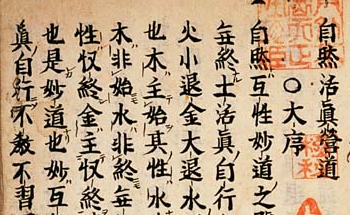 自然活眞營道
〇大序
自然互性妙道之號
無終土活眞自行
火小退金大退水
也木主始其性水
木非始水非終無
性収終金主収終
也是妙道也妙互
眞自行不教不習